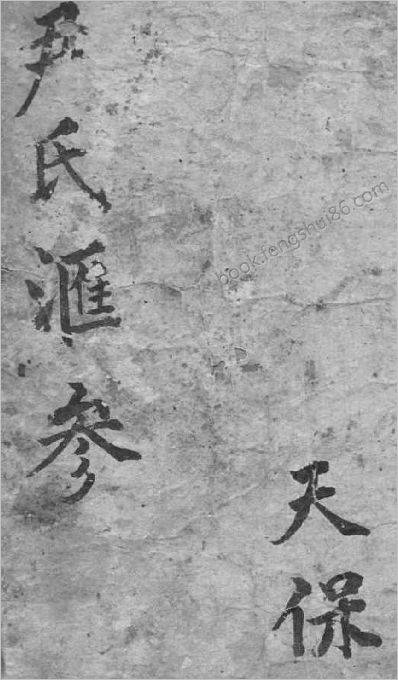 尹氏滙参
天保
book.fengshui86.com